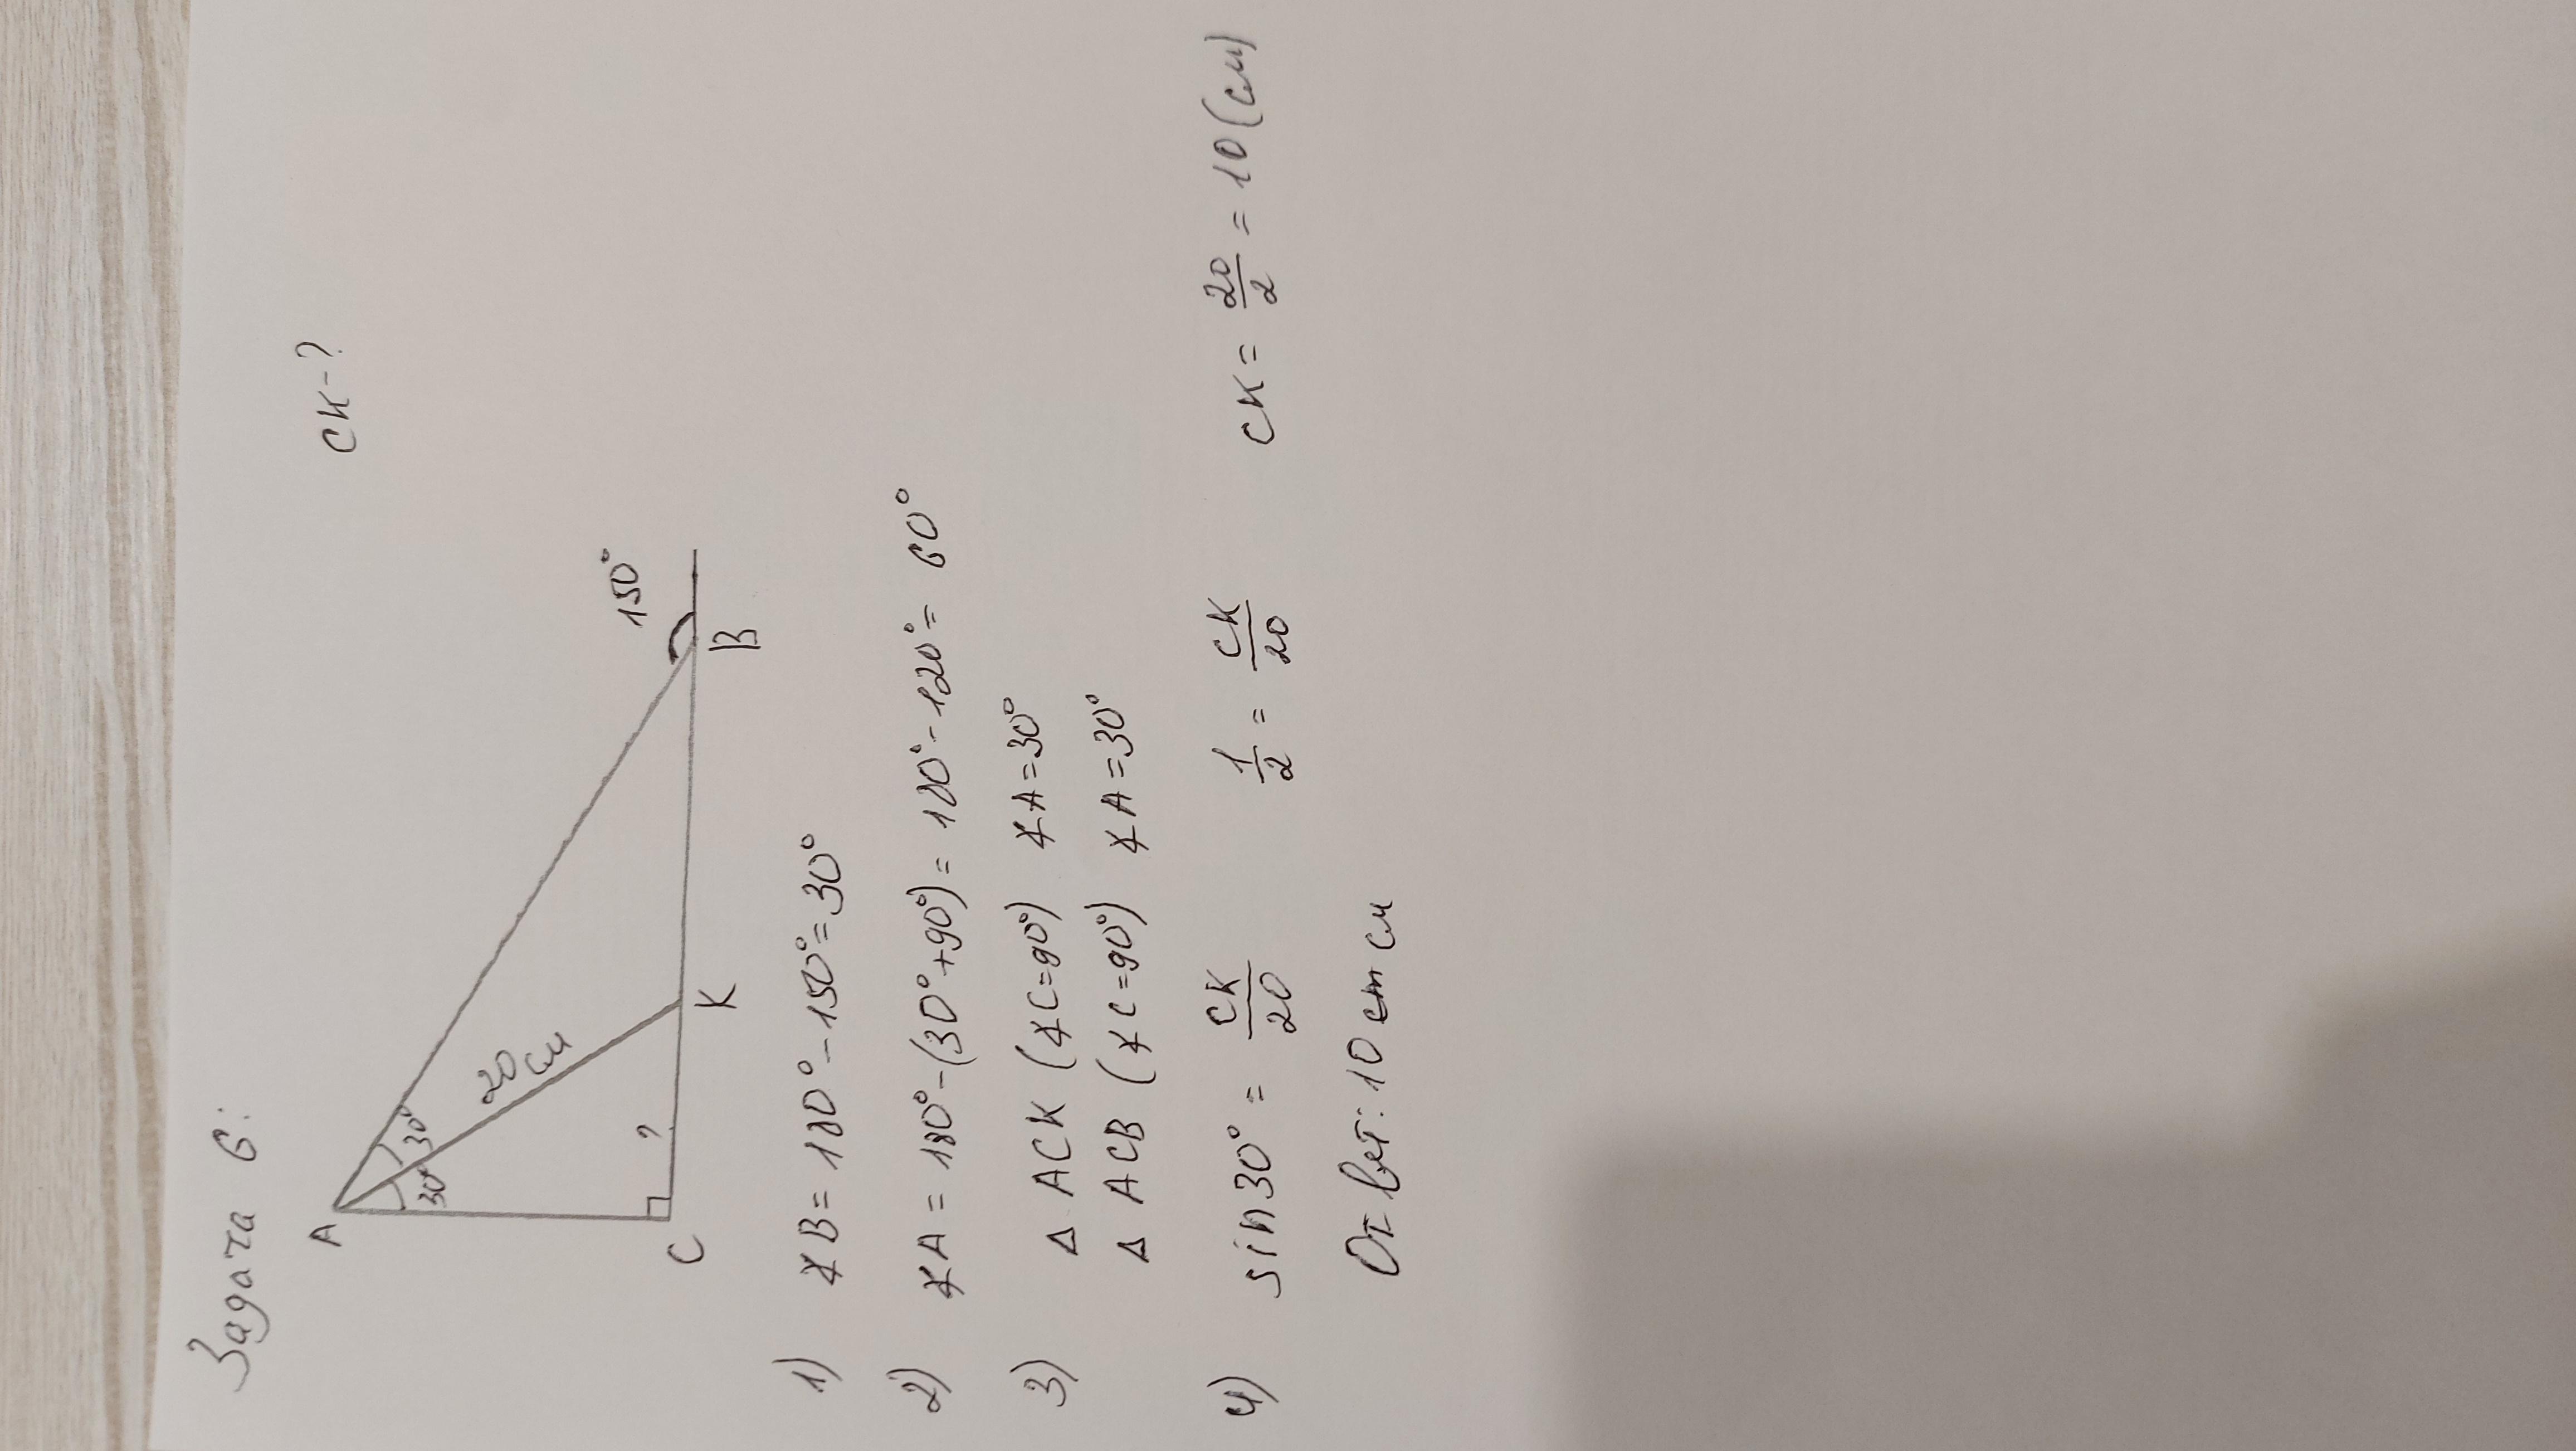 Задача 6:
СК-?
A
30°
30°
20 см
150°
?
C
K
B
1) ∠B = 180° - 150° = 30°
2) ∠A = 180° - (30° + 90°) = 180° - 120° = 60°
3) Δ ACK (∠C = 90°) ∠A = 30°
Δ ACB (∠C = 90°) ∠A = 30°
4) sin30° = CK/20 1/2 = CK/20 CK = 20/2 = 10 (см)
Ответ: 10 см